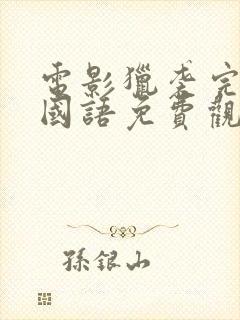 電影獵李完
國語免費觀
孫銀山